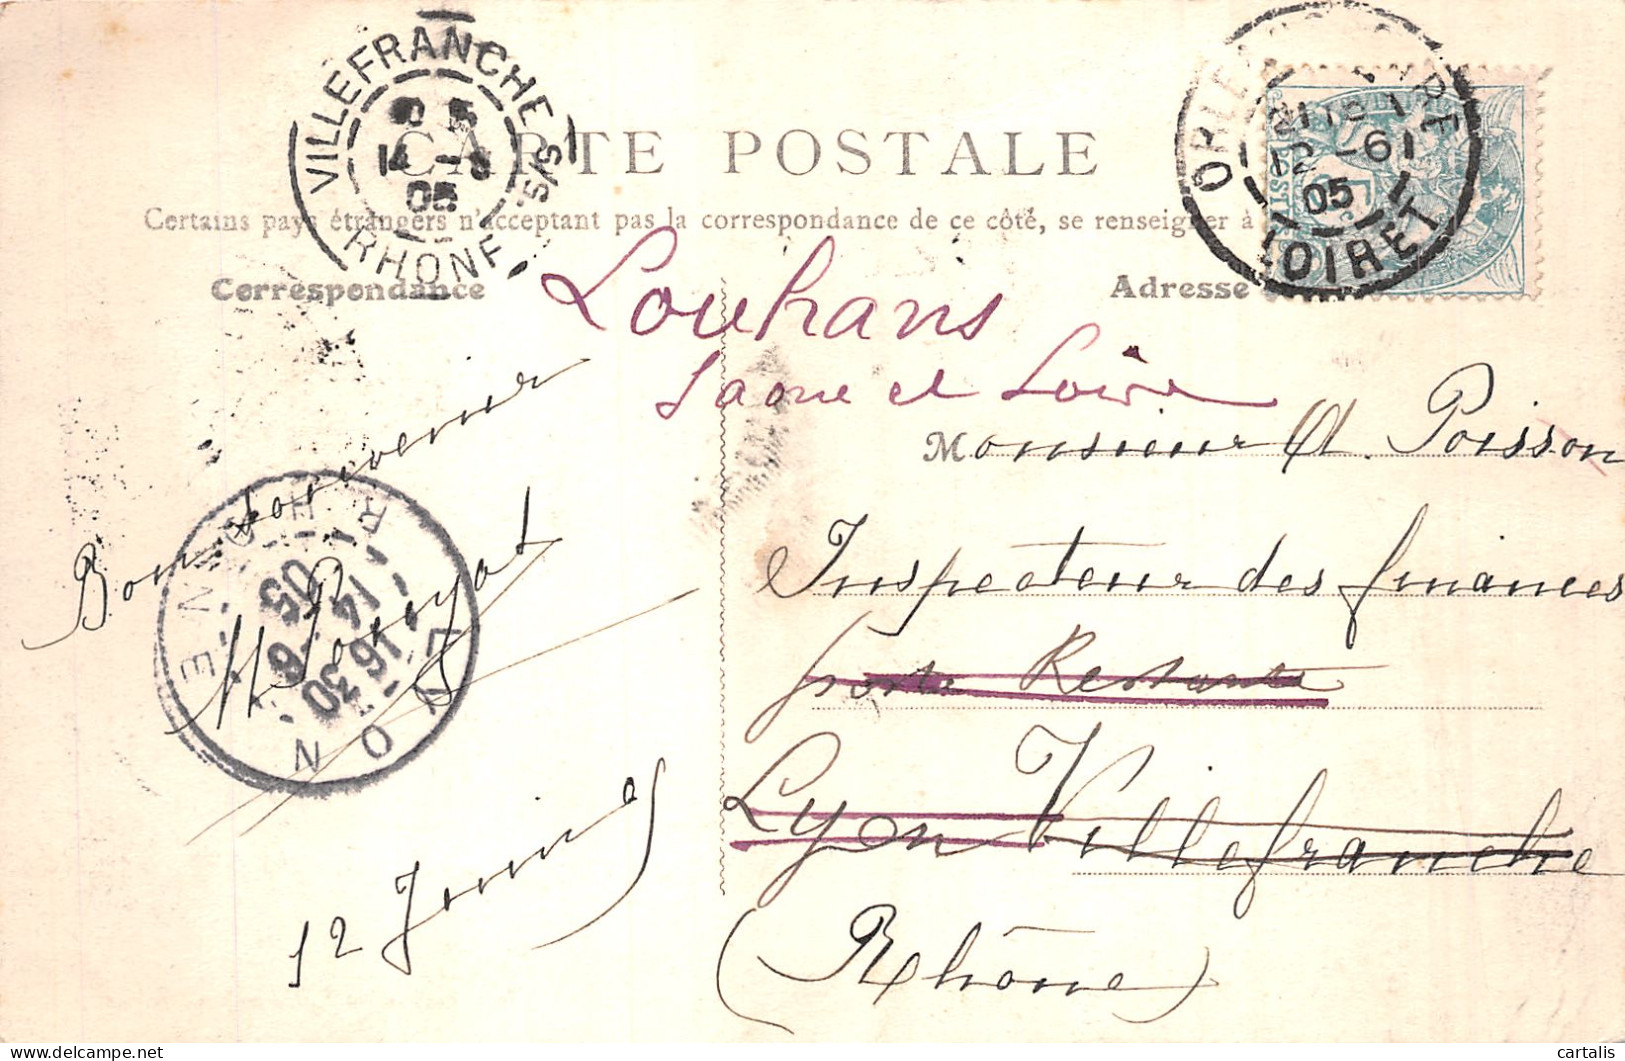 VILLEFRANCHE S/S
14 -6
05
RHONE
CARTE POSTALE
Certains pays étrangers n'acceptant pas la correspondance de ce côté, se renseigner à
12 -6
05
LOIRET
Correspondance
Adresse
Louhans
Saone et Loire
Monsieur A. Poisson
Inspecteur des finances
poste Restante
Lyon Villefranche
(Rhône)
Bon souvenir
12 Juin 05
LYON
RHONE
16 30
14 -6
05
cartalis